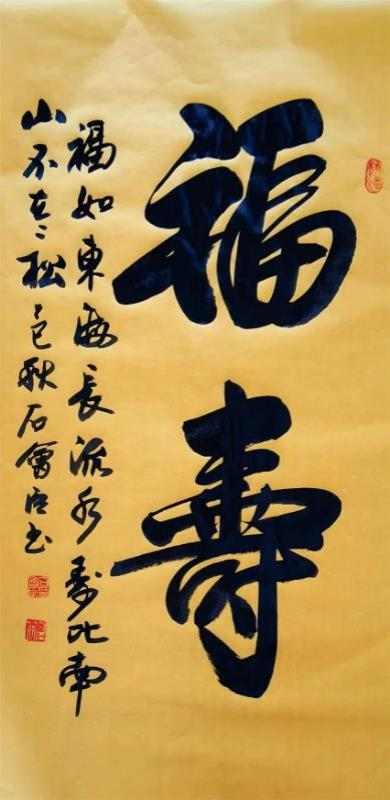 福壽
福如東海長流水壽比南
山不老松乙巳秋石會書